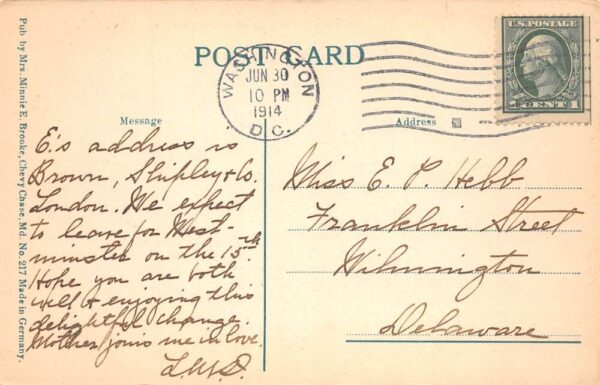 POST CARD
WASHINGTON
JUN 30
10 PM
1914
D.C.
U.S. POSTAGE
1 CENT 1
Message
Address
E.'s address is
Brown, Shipley & Co.
London. We expect
to leave for West-
minster on the 15th
Hope you are both
well & enjoying this
delightful change.
Mother joins me in love.
Miss E. P. Hebb
Franklin Street
Wilmington
Delaware
Pub by Mrs. Minnie E. Brooke, Chevy Chase, Md. No. 217 Made in Germany.